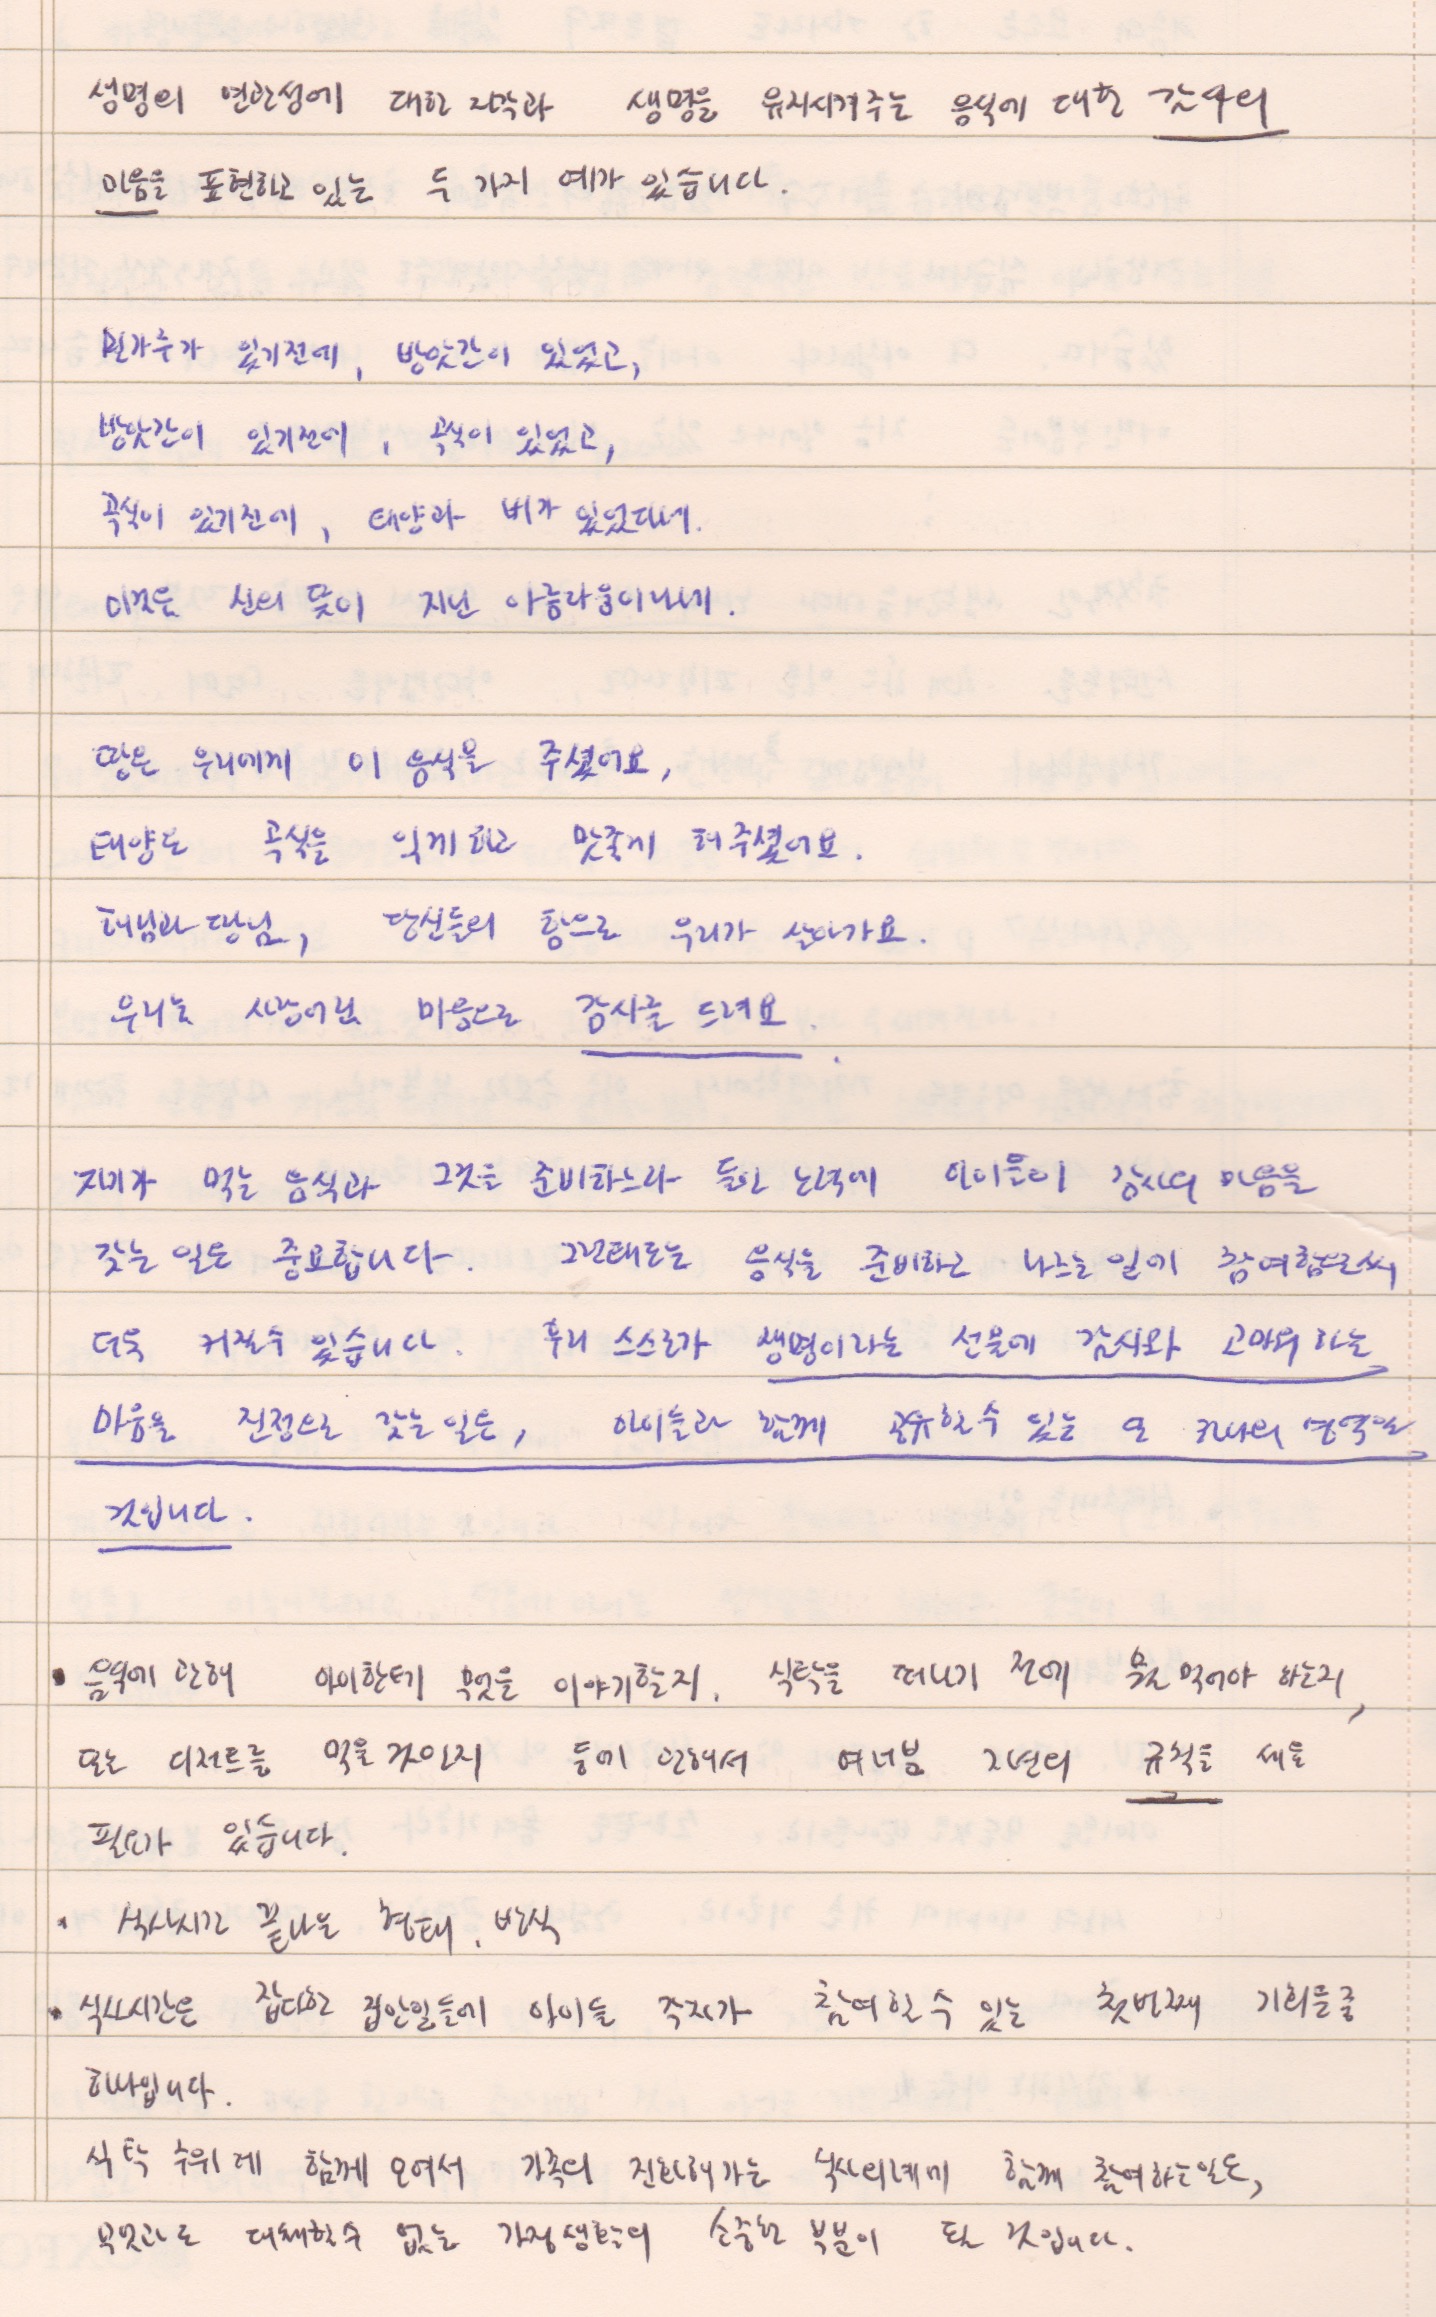 생명의 연관성에 대한 자각과 생명을 유지시켜주는 음식에 대한 감사의
마음을 표현하고 있는 두 가지 예가 있습니다.
밀가루가 있기전에, 방앗간이 있었고,
방앗간이 있기전에, 곡식이 있었고,
곡식이 있기전에, 태양과 비가 있었다네.
이것은 신의 뜻이 지닌 아름다움이라네.
땅은 우리에게 이 음식을 주셨어요,
태양은 곡식을 익게하고 맛좋게 해주셨어요.
해님과 땅님, 당신들의 힘으로 우리가 살아가요.
우리는 사랑어린 마음으로 감사를 드려요.
자기가 먹는 음식과 그것을 준비하느라 들인 노력에 아이들이 감사의 마음을
갖는 일은 중요합니다. 그런태도는 음식을 준비하고 나르는일에 참여함으로써
더욱 커질수 있습니다. 우리 스스로가 생명이라는 선물에 감사와 고마워 하는
마음을 진정으로 갖는일은, 아이들과 함께 공유할수 있는 또 하나의 영역일
것입니다.
• 음식에 관해 아이한테 무엇을 이야기할지, 식탁을 떠나기 전에 무엇 먹어야 하는지,
또는 디저트를 먹을것인지 등에 관해서 여러분 자신의 규칙을 세울
필요가 있습니다.
• 식사시간 끝나는 형태, 방식
• 식사시간은 잡다한 집안일들에 아이들 각자가 참여할수 있는 첫번째 기회들중
하나입니다.
식탁 주위에 함께 모여서 가족의 진화해가는 식사의례에 함께 참여하는일은,
무엇과도 대체할수 없는 가정생활의 소중한 부분이 될 것입니다.